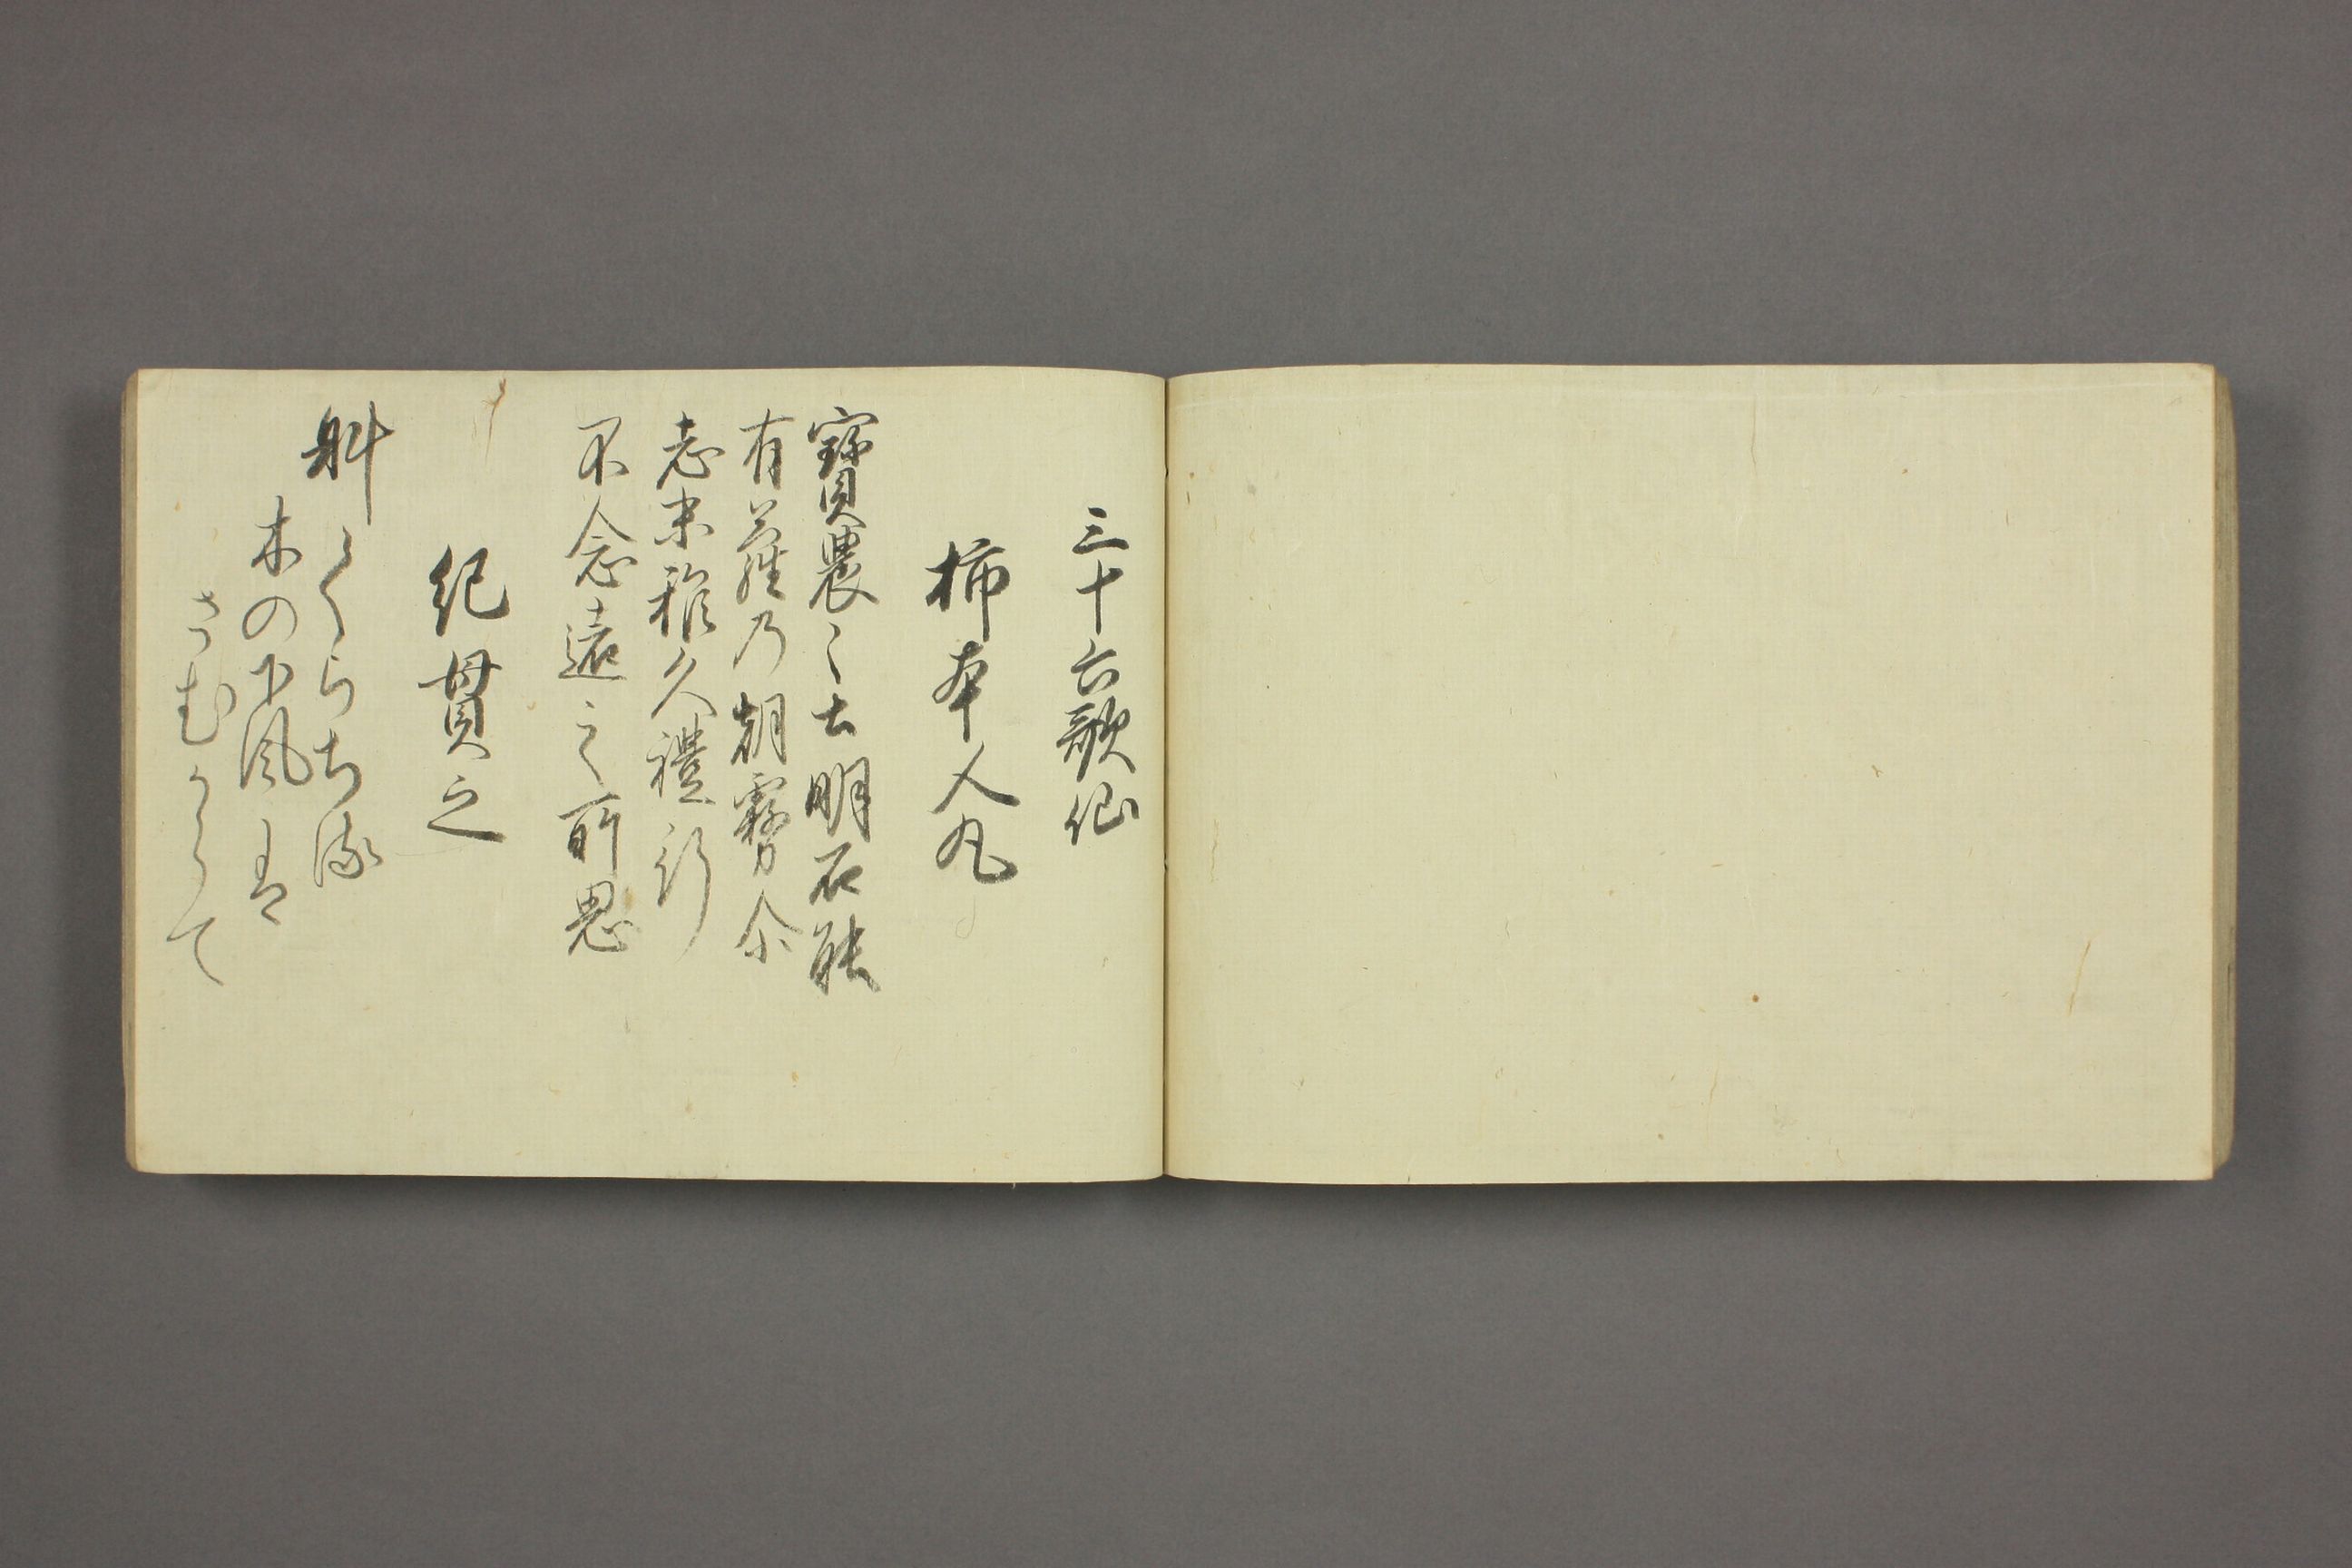 三十六歌仙
柿本人丸
寶農〻士明石能
有羅乃朝霧尓
志末稚久禮行
不念遠之所思
紀貫之
斜くらちる
木の下風は
さむからて